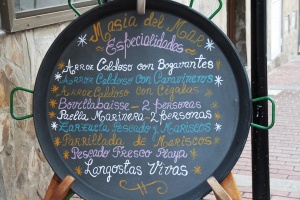 Masía del Mar
Especialidades
Arroz Caldoso con Bogavantes
Arroz Caldoso con Carabineros
Arroz Caldoso con Cigalas
Boullabaisse - 2 personas
Paella Marinera - 2 personas
Zarzuela Pescado y Mariscos
Parrillada de Mariscos
Pescado Fresco Playa
Langostas Vivas